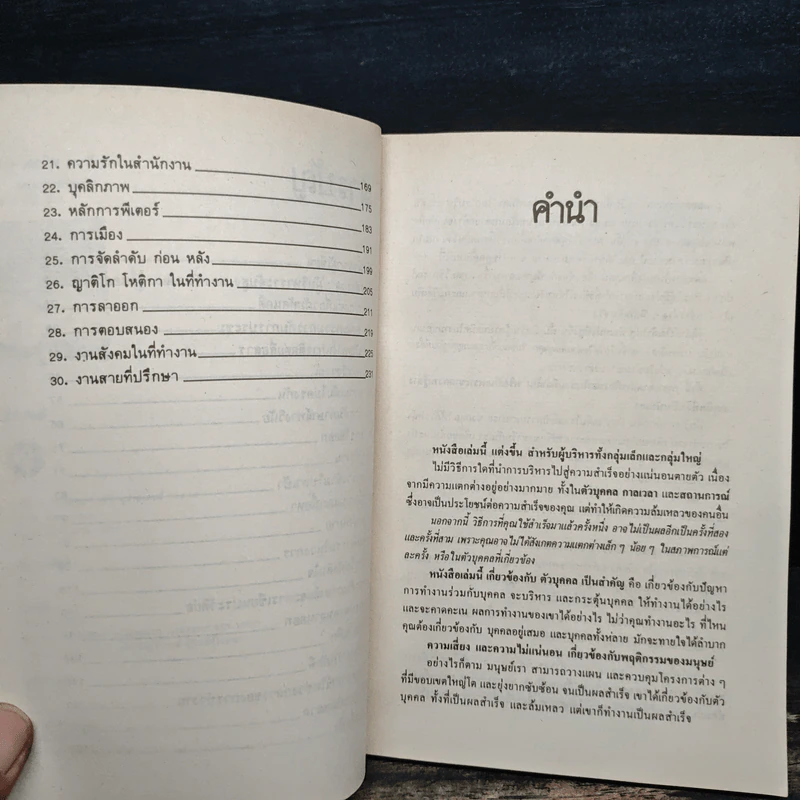 21. ความรักในสำนักงาน 169
22. บุคลิกภาพ 175
23. หลักการพีเตอร์ 183
24. การเมือง 191
25. การจัดลำดับ ก่อน หลัง 199
26. ญาติโก โหติกา ในที่ทำงาน 205
27. การลาออก 211
28. การตอบสนอง 219
29. งานสังคมในที่ทำงาน 225
30. งานสายที่ปรึกษา 231
คำนำ
หนังสือเล่มนี้ แต่งขึ้น สำหรับผู้บริหารทั้งกลุ่มเล็กและกลุ่มใหญ่
ไม่มีวิธีการใดที่นำการบริหารไปสู่ความสำเร็จอย่างแน่นอนตายตัว เนื่อง
จากมีความแตกต่างอยู่อย่างมากมาย ทั้งในตัวบุคคล กาลเวลา และสถานการณ์
ซึ่งอาจเป็นประโยชน์ต่อความสำเร็จของคุณ แต่ทำให้เกิดความล้มเหลวของคนอื่น
นอกจากนี้ วิธีการที่คุณใช้สำเร็จมาแล้วครั้งหนึ่ง อาจไม่เป็นผลอีกเป็นครั้งที่สอง
และครั้งที่สาม เพราะคุณอาจไม่ได้สังเกตความแตกต่างเล็ก ๆ น้อย ๆ ในสภาพการณ์แต่
ละครั้ง หรือในตัวบุคคลที่เกี่ยวข้อง
หนังสือเล่มนี้ เกี่ยวข้องกับ ตัวบุคคล เป็นสำคัญ คือ เกี่ยวข้องกับปัญหา
การทำงานร่วมกับบุคคล จะบริหาร และกระตุ้นบุคคล ให้ทำงานได้อย่างไร
และจะคาดคะเน ผลการทำงานของเขาได้อย่างไร ไม่ว่าคุณทำงานอะไร ที่ไหน
คุณต้องเกี่ยวข้องกับ บุคคลอยู่เสมอ และบุคคลทั้งหลาย มักจะทายใจได้ลำบาก
ความเสี่ยง และความไม่แน่นอน เกี่ยวข้องกับพฤติกรรมของมนุษย์
อย่างไรก็ตาม มนุษย์เรา สามารถวางแผน และควบคุมโครงการต่าง ๆ
ที่มีขอบเขตใหญ่โต และยุ่งยากซับซ้อน จนเป็นผลสำเร็จ เขาได้เกี่ยวข้องกับตัว
บุคคล ทั้งที่เป็นผลสำเร็จ และล้มเหลว แต่เขาก็ทำงานเป็นผลสำเร็จ